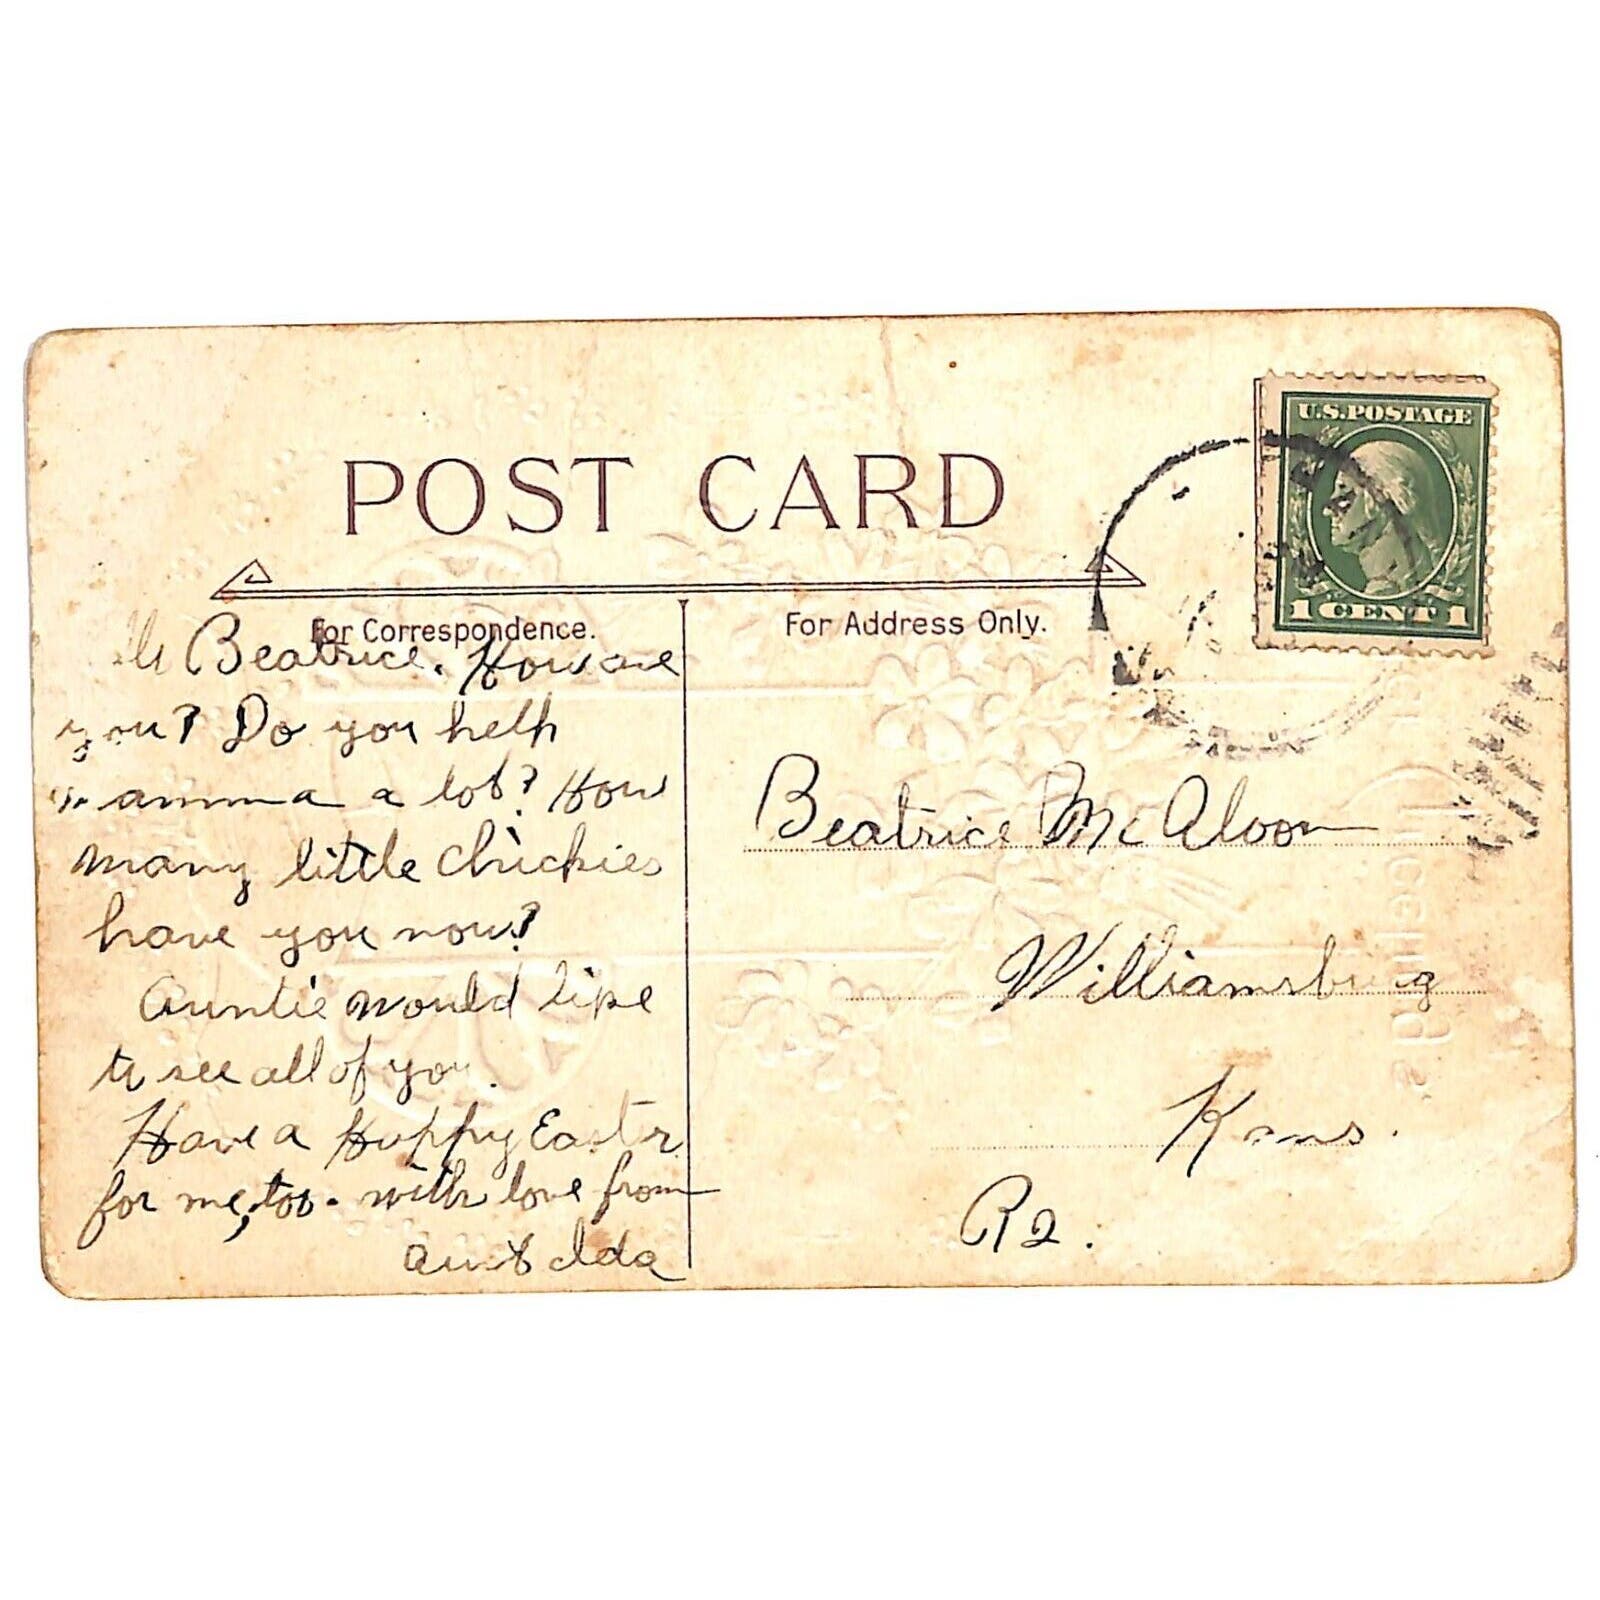 POST CARD
For Correspondence.
For Address Only.
U.S. POSTAGE
1 CENT 1
Beatrice. How are
you? Do you help
mamma a lot? How
many little chickies
have you now?
Auntie would like
to see all of you.
Have a Happy Easter
for me, too. with love from
Aunt Ida
Beatrice McAloon
Williamsburg
Kans.
R2.